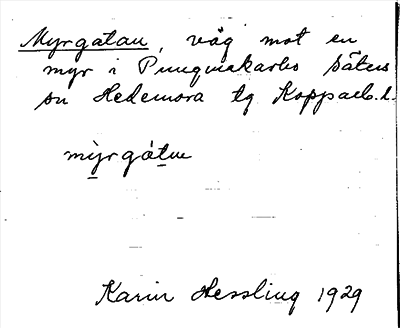 Myrgatan, väg mot en
myr i Pungmakarbo Säters
sn Hedemora tg Kopparb. l.
mỳrgát
Karin Hessling 1929